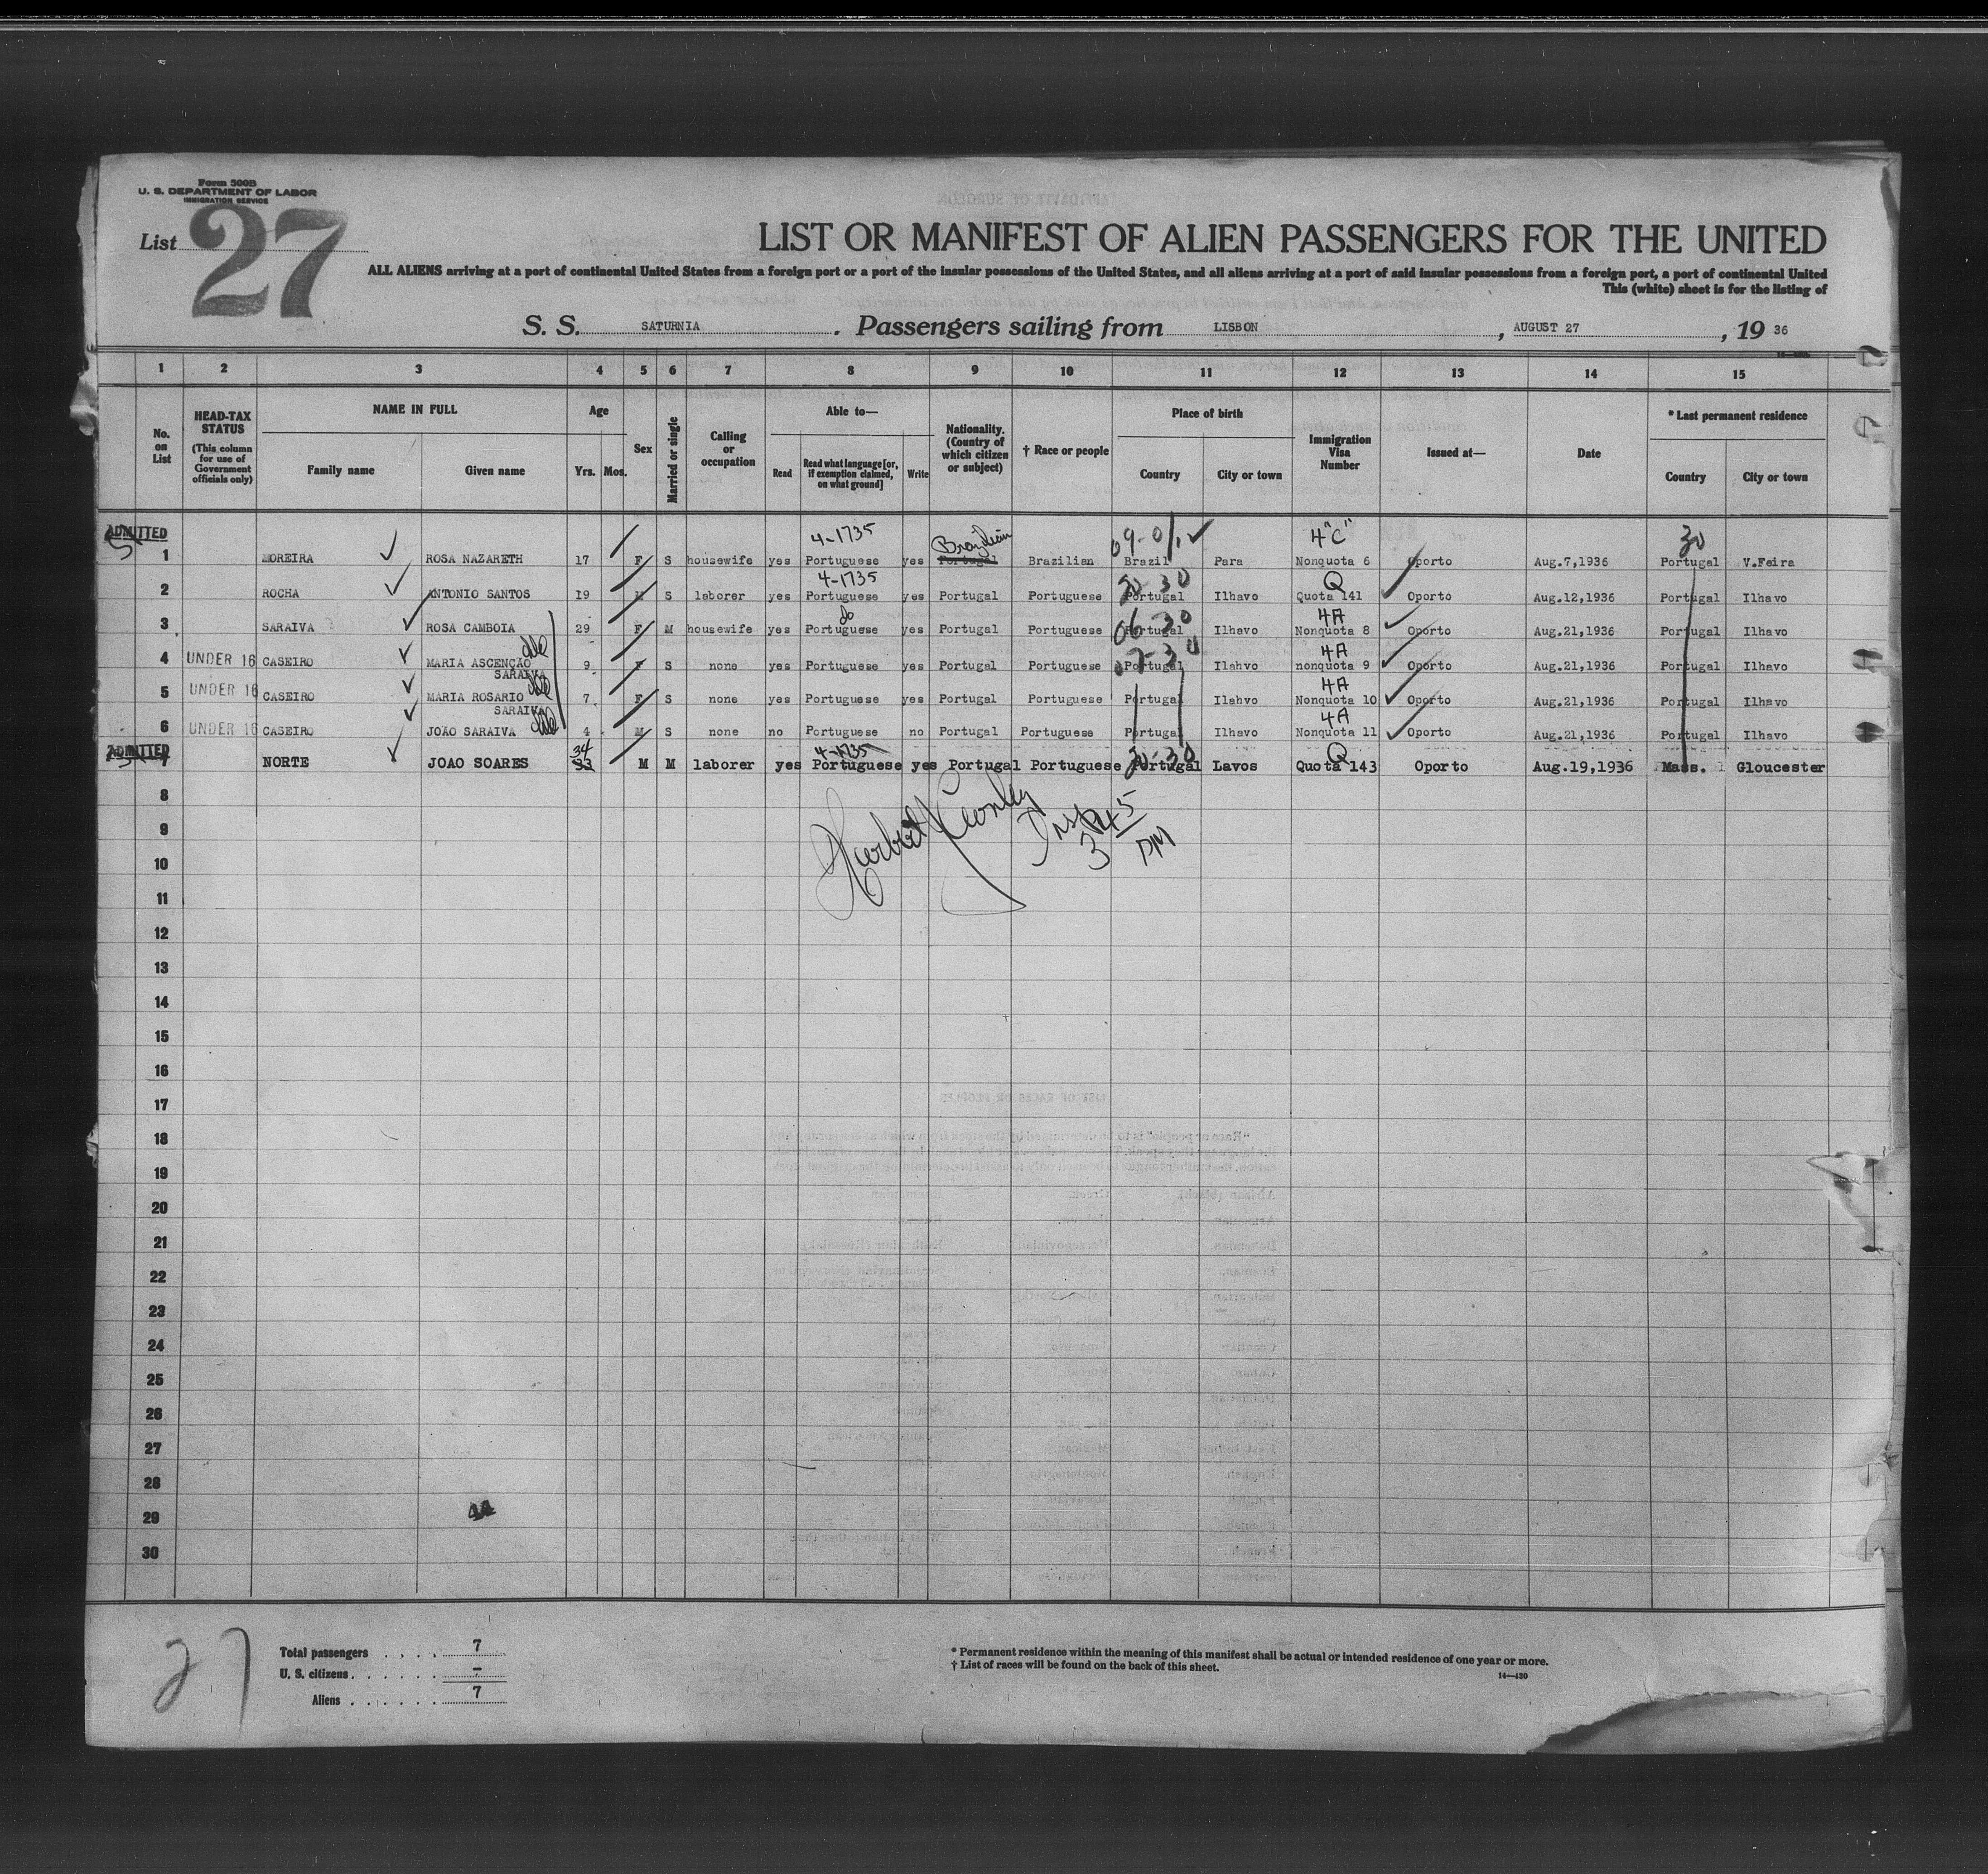 Form 500B
U. S. DEPARTMENT OF LABOR
IMMIGRATION SERVICE
List 27
LIST OR MANIFEST OF ALIEN PASSENGERS FOR THE UNITED
ALL ALIENS arriving at a port of continental United States from a foreign port or a port of the insular possessions of the United States, and all aliens arriving at a port of said insular possessions from a foreign port, a port of continental United
This (white) sheet is for the listing of
S. S. SATURNIA . Passengers sailing from LISBON , AUGUST 27 , 19 36
1 2 3 4 5 6 7 8 9 10 11 12 13 14 15
No. on List
HEAD-TAX STATUS (This column for use of Government officials only)
NAME IN FULL
Family name Given name
Age
Yrs. Mos.
Sex
Married or single
Calling or occupation
Able to—
Read Read what language [or, if exemption claimed, on what ground] Write
Nationality. (Country of which citizen or subject)
† Race or people
Place of birth
Country City or town
Immigration Visa Number
Issued at—
Date
* Last permanent residence
Country City or town
ADMITTED 4-1735 Brazilian 09-0/1 4"C" 30
1 MOREIRA ROSA NAZARETH 17 F S housewife yes Portuguese yes Portugal Brazilian Brazil Para Nonquota 6 Oporto Aug.7,1936 Portugal V.Feira
4-1735 20-30 Q
2 ROCHA ANTONIO SANTOS 19 M S laborer yes Portuguese yes Portugal Portuguese Portugal Ilhavo Quota 141 Oporto Aug.12,1936 Portugal Ilhavo
do 06-30 4A
3 SARAIVA ROSA CAMBOIA 29 F M housewife yes Portuguese yes Portugal Portuguese Portugal Ilhavo Nonquota 8 Oporto Aug.21,1936 Portugal Ilhavo
4A
4 UNDER 16 CASEIRO MARIA ASCENÇAO SARAIVA 9 F S none yes Portuguese yes Portugal Portuguese Portugal Ilahvo nonquota 9 Oporto Aug.21,1936 Portugal Ilhavo
4A
5 UNDER 16 CASEIRO MARIA ROSARIO SARAIVA 7 F S none yes Portuguese yes Portugal Portuguese Portugal Ilahvo Nonquota 10 Oporto Aug.21,1936 Portugal Ilhavo
4A
6 UNDER 16 CASEIRO JOÃO SARAIVA 4 M S none no Portuguese no Portugal Portuguese Portugal Ilhavo Nonquota 11 Oporto Aug.21,1936 Portugal Ilhavo
ADMITTED 34 4-1735 20-30 Q
7 NORTE JOAO SOARES 33 M M laborer yes Portuguese yes Portugal Portuguese Portugal Lavos Quota 143 Oporto Aug.19,1936 Mass. Gloucester
8
9
10
11
12
13
14
15
16
17
18
19
20
21
22
23
24
25
26
27
28
29
30
27
Total passengers . . . . 7
U. S. citizens . . . . . . –
Aliens . . . . . . 7
* Permanent residence within the meaning of this manifest shall be actual or intended residence of one year or more.
† List of races will be found on the back of this sheet.
14—430